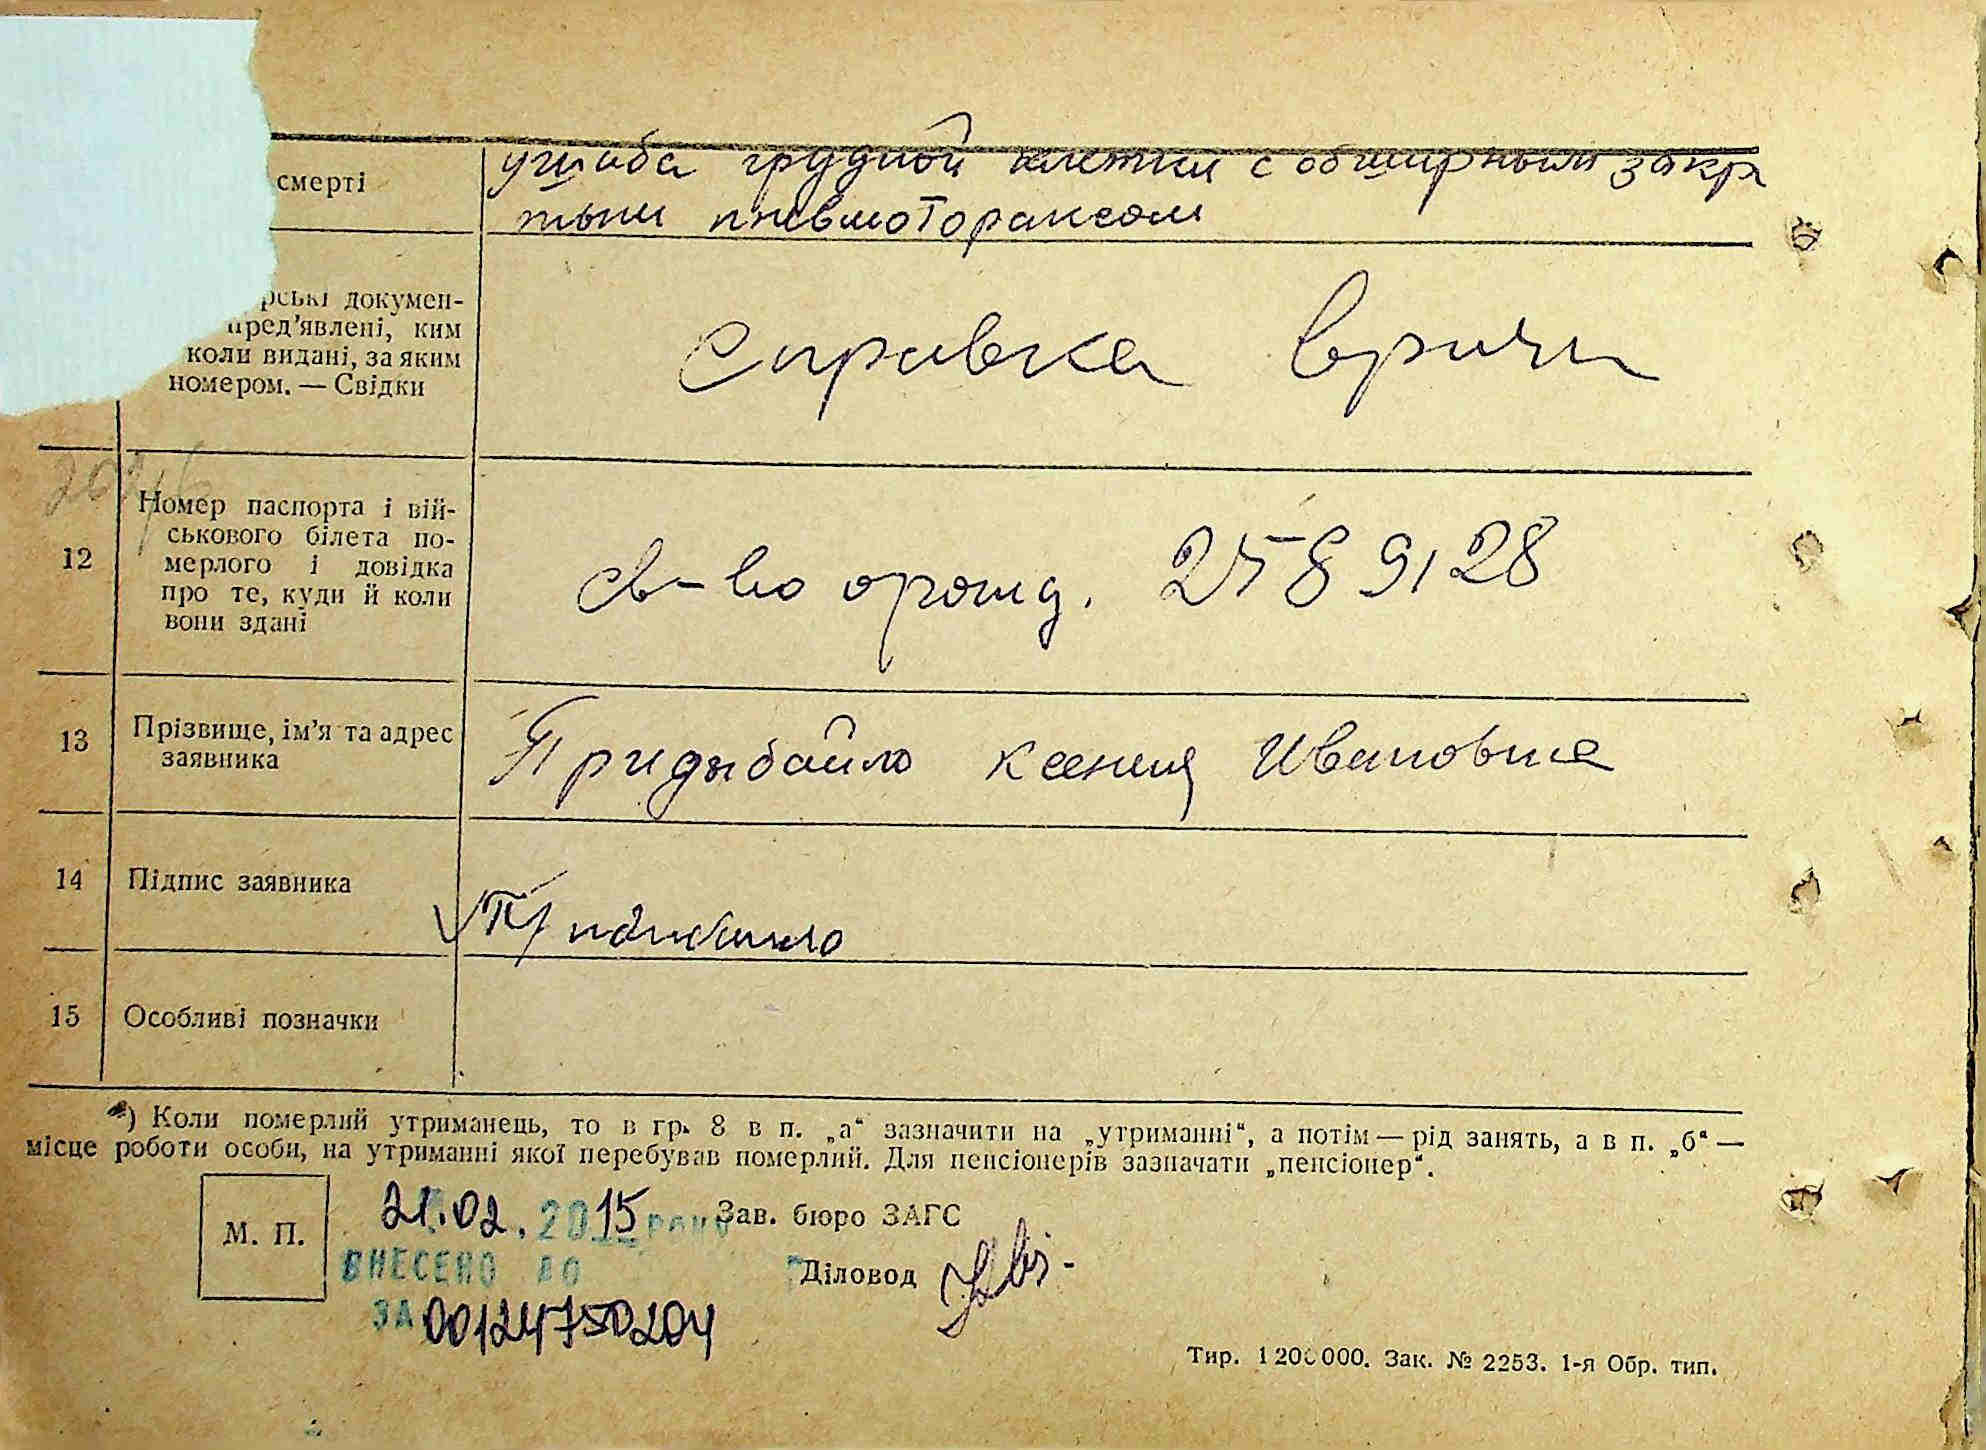 смерті
ушиба грудной клетки с обширным закр
тым пневмотораксом
рські докумен-
пред'явлені, ким
коли видані, за яким
номером. — Свідки
справка врача
12
Номер паспорта і вій-
ськового білета по-
мерлого і довідка
про те, куди й коли
вони здані
св-во орожд. 2589128
13
Прізвище, ім'я та адрес
заявника
Придыбайло Ксения Ивановна
14
Підпис заявника
Придибайло
15
Особливі позначки
*) Коли померлий утриманець, то в гр. 8 в п. „а“ зазначити на „утриманні“, а потім — рід занять, а в п. „б“ —
місце роботи особи, на утриманні якої перебував померлий. Для пенсіонерів зазначати „пенсіонер“.
М. П.
21.02.2015 року
Зав. бюро ЗАГС
ВНЕСЕНО ДО
Діловод
ЗА 00124750204
Тир. 1 200 000. Зак. № 2253. 1-я Обр. тип.